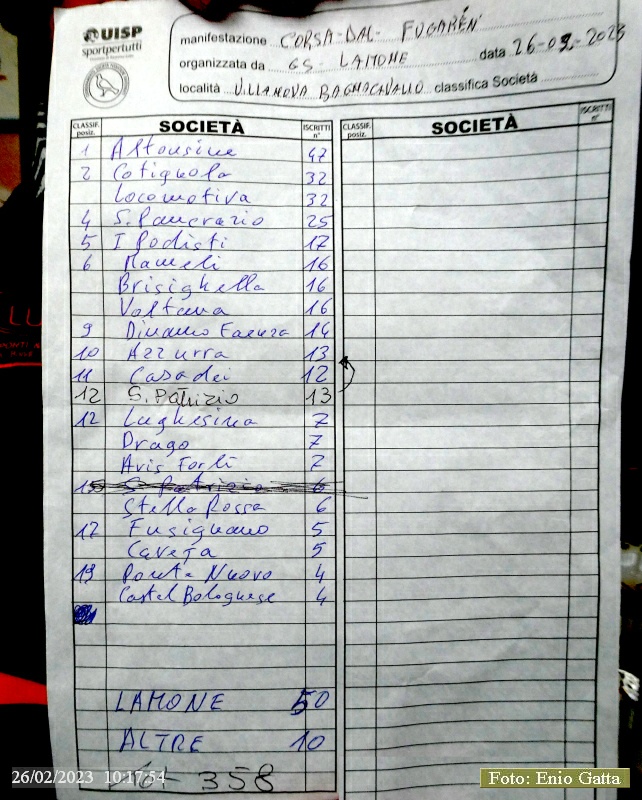 UISP
sportpertutti
manifestazione CORSA-DAL-FUGARÉN
organizzata da GS-LAMONE data 26-02-2023
località VILLANOVA BAGNACAVALLO classifica Società
CLASSIF. posiz. SOCIETÀ ISCRITTI n° CLASSIF. posiz. SOCIETÀ ISCRITTI n°
1 Alfonsine 47
2 Cotignola 32
Locomotiva 32
4 S. Pancrazio 25
5 I Podisti 17
6 Mameli 16
Brisighella 16
Voltana 16
9 Dinamo Faenza 14
10 Azzurra 13
11 Casadei 12
12 S. Patrizio 13
12 Lughesina 7
Drago 7
Avis Forlì 7
15 S. Patrizio 6
Stella Rossa 6
17 Fusignano 5
Caveja 5
19 Ponte Nuovo 4
Castel Bolognese 4
LAMONE 50
ALTRE 10
Tot 358
26/02/2023 10:17:54
Foto: Enio Gatta